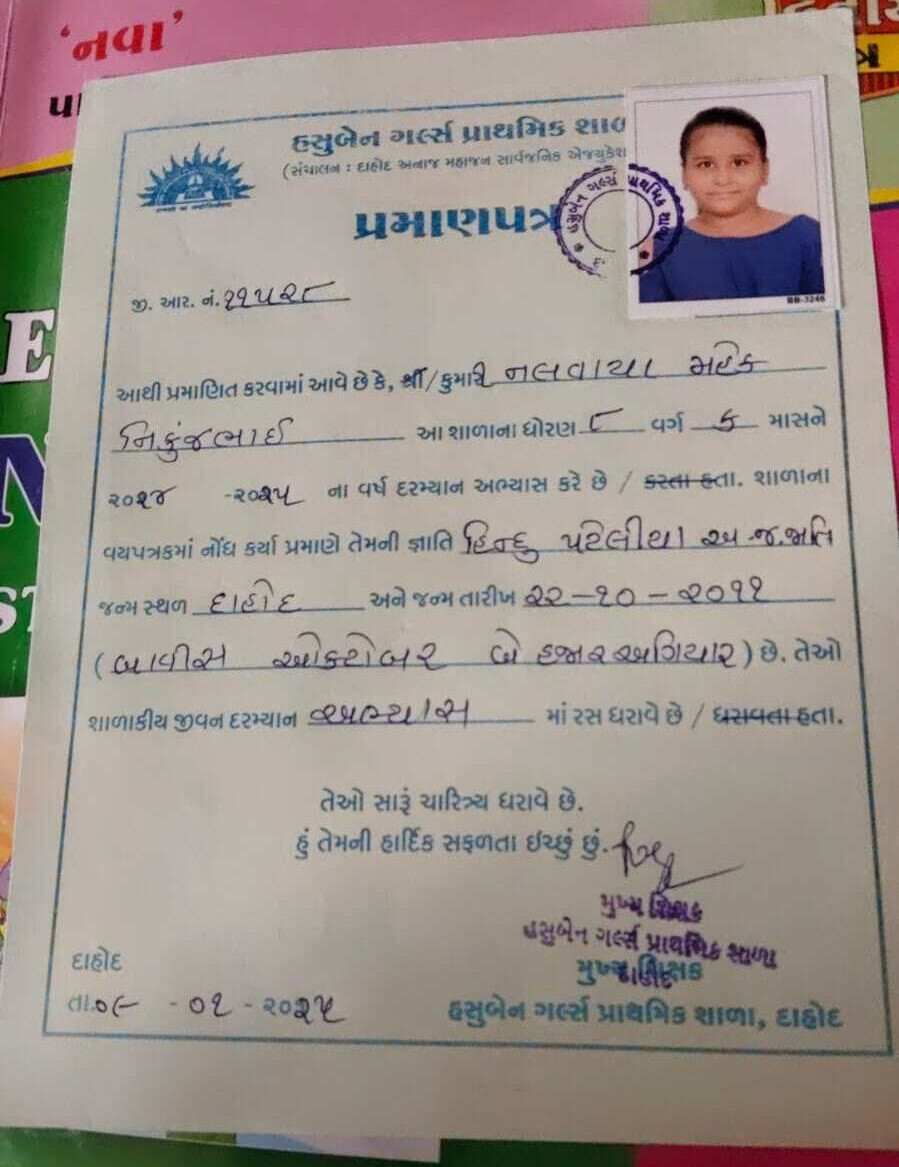 'નવા'
હસુબેન ગર્લ્સ પ્રાથમિક શાળ
(સંચાલન : દાહોદ અનાજ મહાજન સાર્વજનિક એજ્યુકેશ
પ્રમાણપત્ર
BB-3246
જી. આર. નં. ૧૧૫૨૮
આથી પ્રમાણિત કરવામાં આવે છે કે, શ્રી/કુમારી નલવાયા મહેક
નિકુંજભાઈ આ શાળાના ધોરણ ૮ વર્ગ ક માસને
૨૦૨૪ -૨૦૨૫ ના વર્ષ દરમ્યાન અભ્યાસ કરે છે / કરતા હતા. શાળાના
વયપત્રકમાં નોંધ કર્યા પ્રમાણે તેમની જ્ઞાતિ હિન્દુ પટેલીયા અ.જ.જાતિ
જન્મ સ્થળ દાહોદ અને જન્મ તારીખ ૨૨-૧૦-૨૦૧૧
(બાવીસ ઓક્ટોબર બે હજાર અગિયાર) છે. તેઓ
શાળાકીય જીવન દરમ્યાન અભ્યાસ માં રસ ધરાવે છે / ધરાવતા હતા.
તેઓ સારૂં ચારિત્ર્ય ધરાવે છે.
હું તેમની હાર્દિક સફળતા ઈચ્છું છું.
મુખ્ય શિક્ષક
હસુબેન ગર્લ્સ પ્રાથમિક શાળા
દાહોદ
મુખ્ય શિક્ષક
તા.૦૯ -૦૧-૨૦૨૫
હસુબેન ગર્લ્સ પ્રાથમિક શાળા, દાહોદ